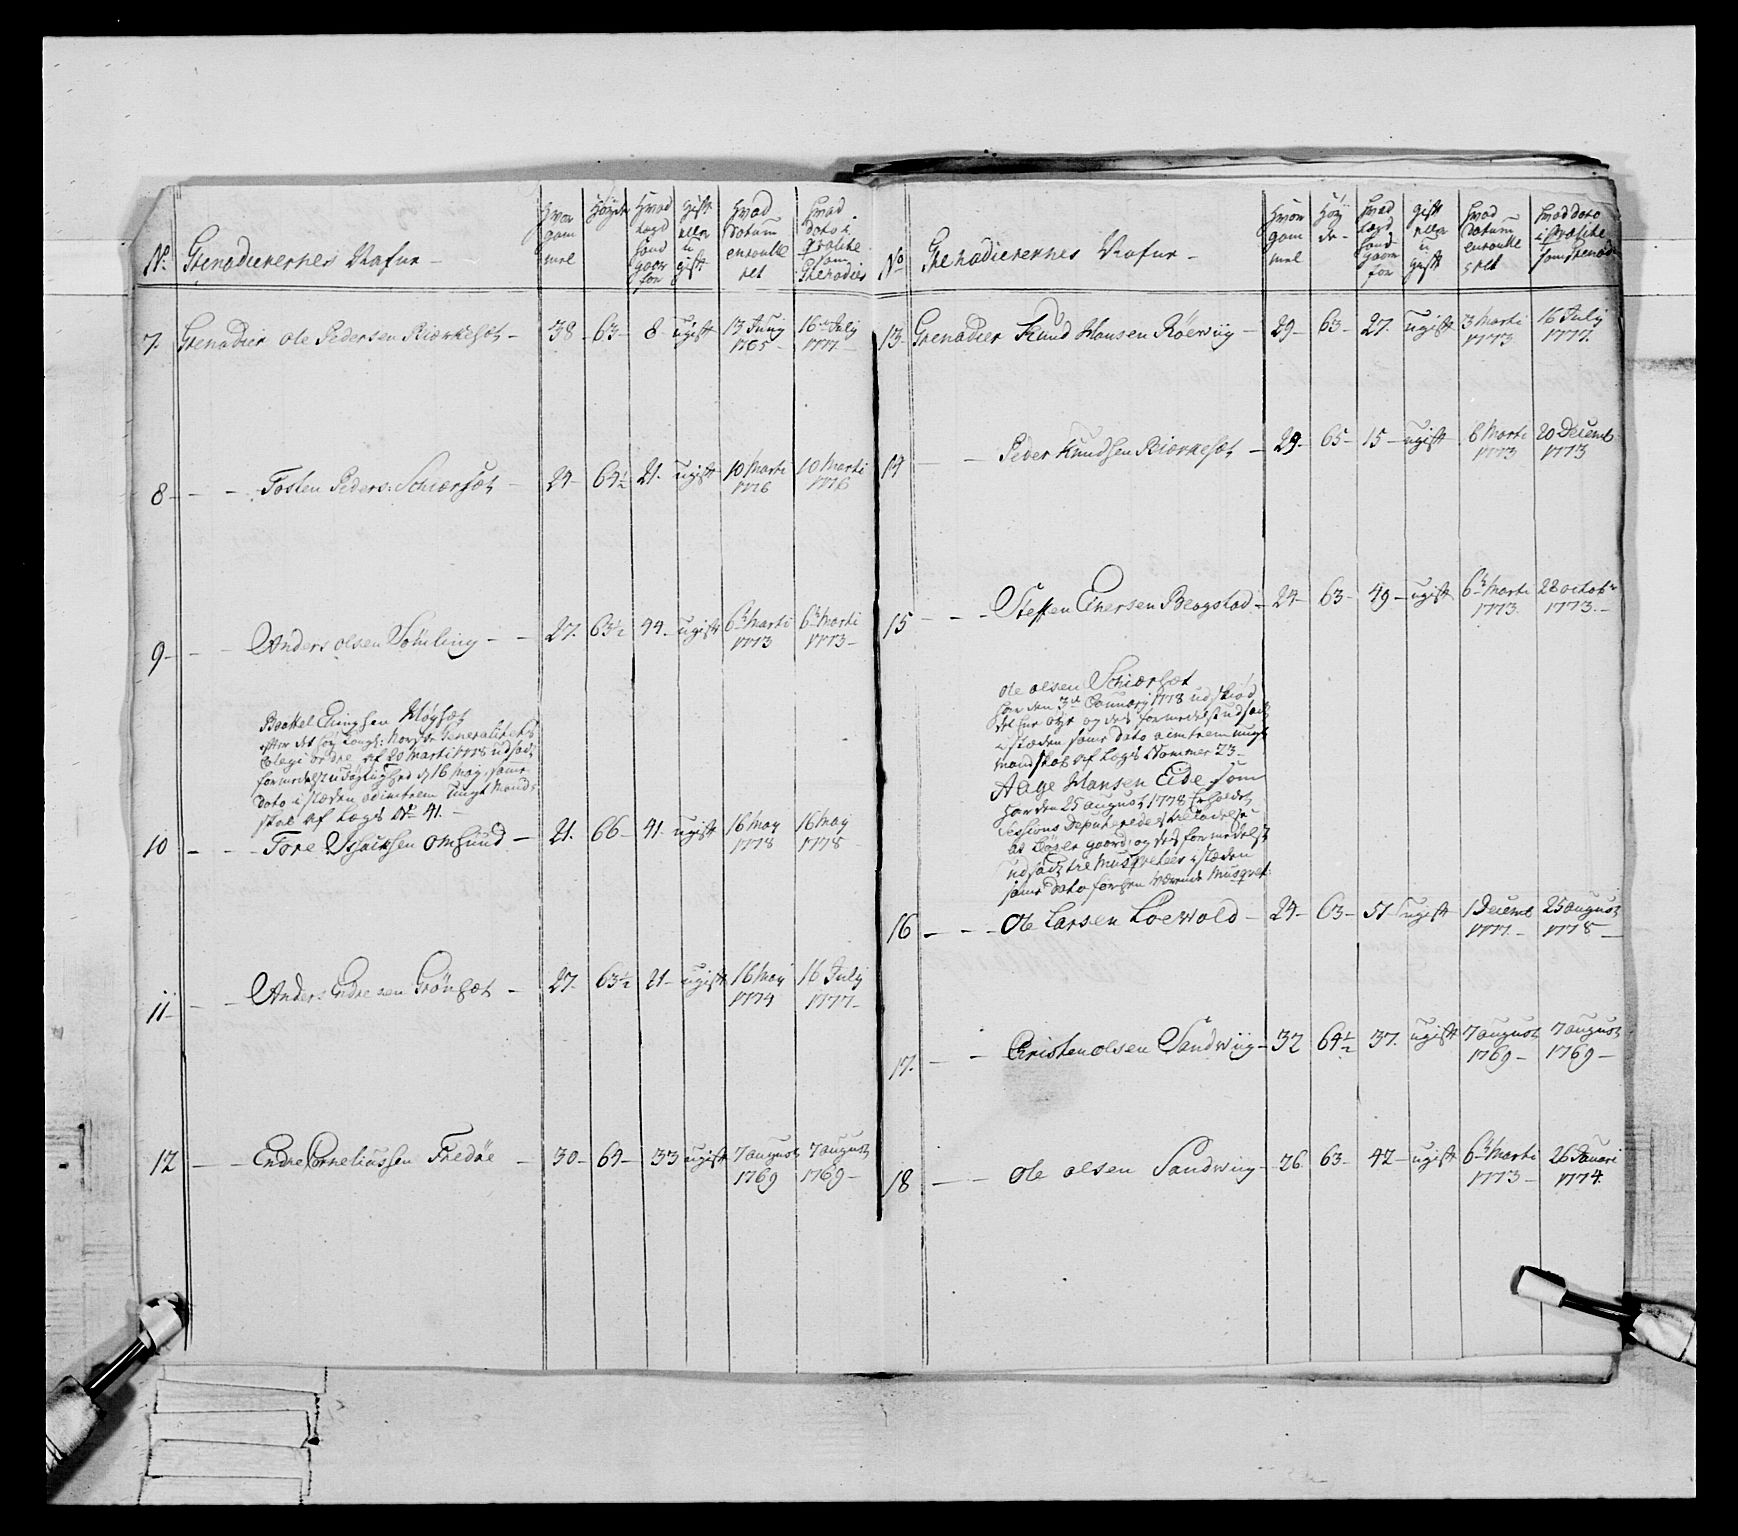 No. Grenadierernes Nafne – Hvor gam mel Høyde Hvad Lægd hand gaar for gift eller u gift Hvad Datum enroulle ret Hvad Dato i Qvalite som Grenadeer
7. Grenadier Ole Pedersen Biørkesæt – 38 – 63 – 8 – ugift 13 Juny 1765 – 16 July 1777 –
8 – – – Tosten Peders: Schiærsæt – 24 – 64½ 21. ugift 10 Marti 1776 10 Marti 1776
9 – – Anders Olsen Solsling – – 27. 63½ 44. ugift 6 Marti 1773 6 Marti 1773 –
efter det høy Kongl: Norske Generalitets
Colegi ordre af 20 Marti 1778 udsadt
formedelst udøgtighed d 16 May, samme
Dato i stæden adimtrem Ungt Mand:
skal af Lægd No 41. –
10 – – – Tore Isacksen Omsund – 21. 66 – 41. ugift 16 May 1778 16 May 1778 –
11 – – – Anders Endresen Grønsæt – 27. 63½ 21 – ugift 16 May 1774 16 July 1777 –
12 – – Endre Corneliussen Fredøe – 30 – 64 – 33 ugift 7 august 1769 7 august 1769 –
No Grenadierernes Nafne – Hvor gam mel Høy de – Hvad Lægd hand gaar for gift eller u gift Hvad Datum enroulle ret Hvad Dato i Qvalite som Grenad:
13 Grenadier Knud Hansen Røewiig – 29 – 63 – 27. ugift 3 Marti 1773 16 July 1777.
14 – – Peder Knudsen Biørkesæt – 29. 65 – 15 – ugift 6 Marti 1773 20 Decemb 1773
15 – – – Steffen Eversen Bergstad – 24 – 63 – 49 – ugift 6 Marti 1773. 28 octobr 1773. –
Ole Olsen Schiærsæt
som den 3de Januarij 1778 udskiød
det høyre Øye og det formedelst udsadt
i stæden samme Dato adimtrem ungt
Mandskab af Lægd Nommer 23 –
Aage Hansen Eide som
har den 25 august 1778 erholdet
Sessions Deputeredes tilladelse
gaard, og det formedelst
udsadt til Musqveteer i stæden
samme Dato forhen værende Musqvet:
16 – – – Ole Larsen Loewold – 24 – 63 – 51 ugift 1 Decemb 1777 – 25 august 1778 –
17. – – Christen Olsen Sandwiig – 32 64½ 37. ugift 7 august 1769 – 7 august 1769 –
18 – – Ole Olsen Sandwiig – 26. 63 – 42 – ugift 6 Marti 1773 – 26 Januari 1774.